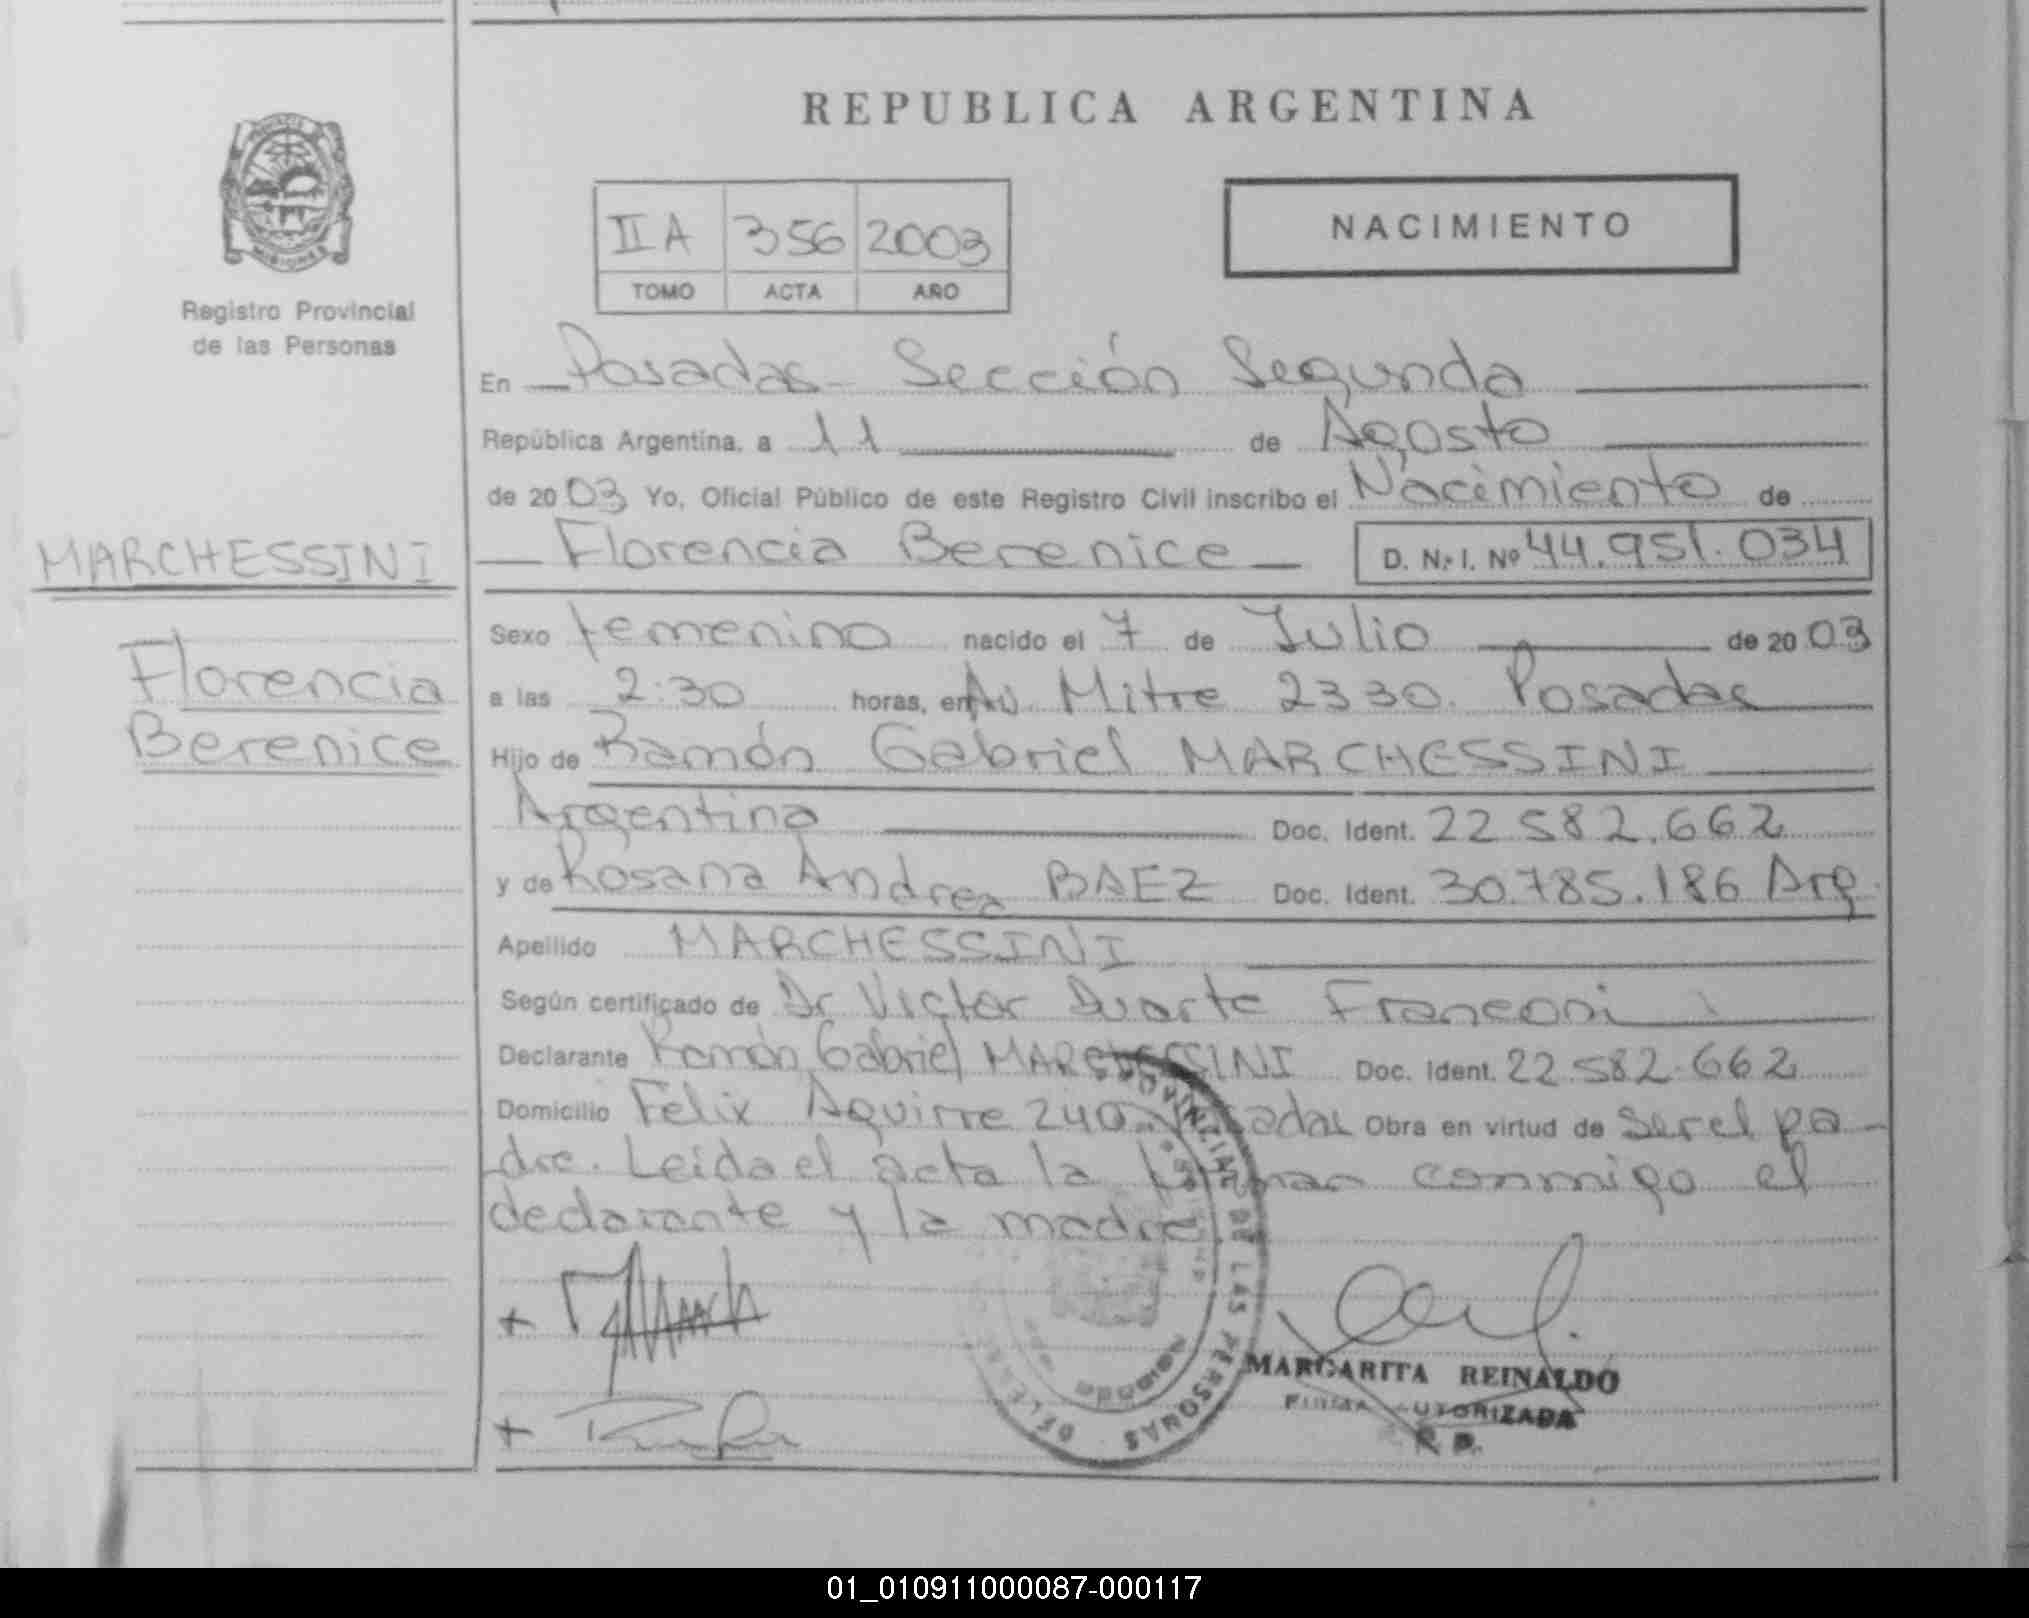 REPUBLICA ARGENTINA
PROVINCIA DE
MISIONES
Registro Provincial
de las Personas
II A 356 2003
TOMO ACTA AÑO
NACIMIENTO
En Posadas - Sección Segunda
República Argentina, a 11 de Agosto
de 2003 Yo, Oficial Público de este Registro Civil inscribo el Nacimiento de
Florencia Berenice D. N. I. Nº 44.951.034
MARCHESSINI
Florencia
Berenice
Sexo femenino nacido el 7 de Julio de 2003
a las 2:30 horas, en Av Mitre 2330. Posadas
Hijo de Ramón Gabriel MARCHESSINI
Argentina Doc. Ident. 22.582.662
y de Rosana Andrea BAEZ Doc. Ident. 30.785.186 Arg.
Apellido MARCHESSINI
Según certificado de Dr Victor Duarte Franconi
Declarante Ramón Gabriel MARCHESSINI Doc. Ident. 22.582.662
Domicilio Felix Aguirre 240 Posadas Obra en virtud de ser el pa-
dre. Leida el acta la firman conmigo el
declarante y la madre
PROVINCIAL DE LAS PERSONAS
MISIONES
MARGARITA REINALDO
FIRMA AUTORIZADA
R. P.
01_010911000087-000117